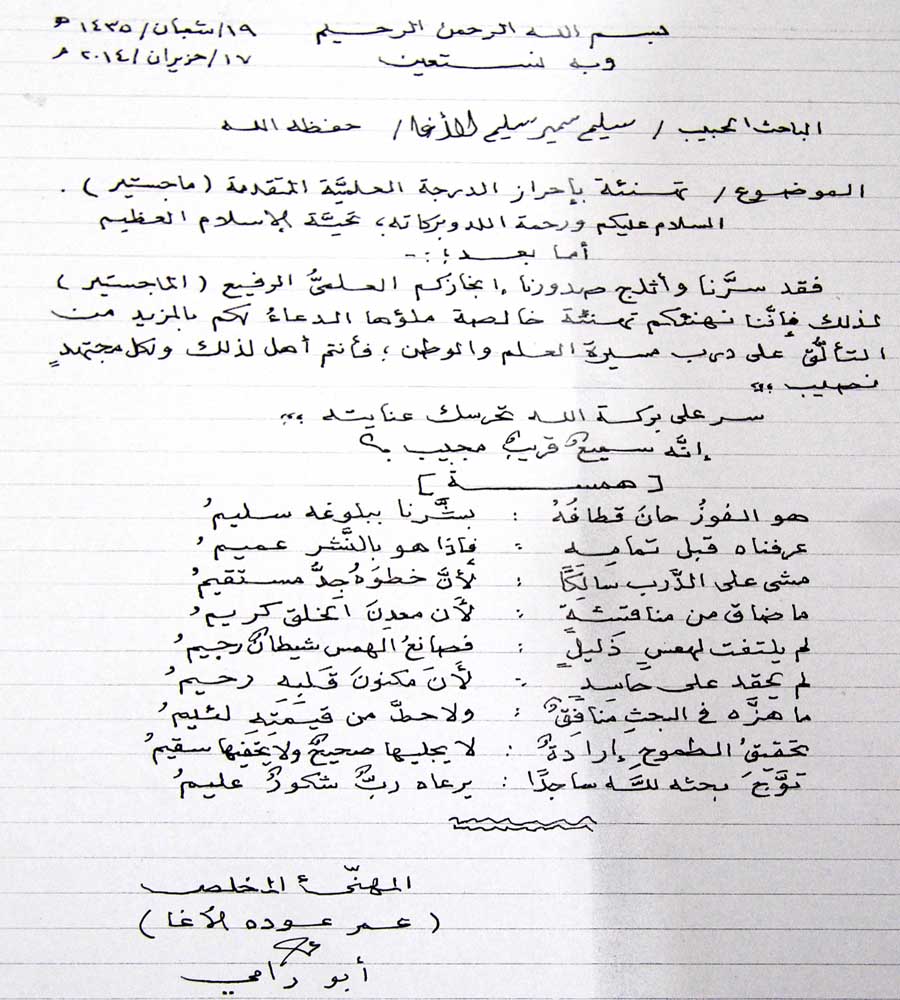 بسم الله الرحمن الرحيم ١٩/شعبان/١٤٣٥ هـ
وبه نستعين ١٧/حزيران/٢٠١٤ م
الباحث الحبيب / سليم سمير سليم الأغا / حفظه الله
الموضوع / تهنئة بإحراز الدرجة العلميَّة المتقدمة (ماجستير) .
السلام عليكم ورحمة الله وبركاته؛ تحيَّة الإسلام العظيم
أما بعد ؛ :-
فقد سرَّنا وأثلج صدورنا إنجازكم العلميُّ الرفيع (الماجستير)
لذلك فإنَّنا نهنئكم تهنئة خالصة ملؤها الدعاءُ لكم بالمزيد من
التألُّق على درب مسيرة العلم والوطن ؛ فأنتم أهل لذلك ولكل مجتهدٍ
نصيب ،،
سر على بركة الله تحرسك عنايته ،،
إنَّه سميعٌ قريبٌ مجيب
[ همسة ]
هو الفوزُ حانَ قطافُهُ : بشَّرنا ببلوغه سليمُ
عرفناه قبل تمامه : فإذا هو بالنَّشر عميمُ
مشى على الدَّرب سالكًا : لأنَّ خطوَهُ جِدُّ مستقيمُ
ما ضاق من مناقشةٍ : لأن معدنَ الخلق كريمُ
لم يلتفت لهمسِ ذَليلٍ : فصانعُ الهمس شيطانٌ رجيمُ
لم يحقد على حاسدٍ : لأَنَ مكنونَ قَلبِهِ رحيمُ
ما هزَّه في البحثِ منافقٌ : ولا حطَّ من قيمَتِهِ لئيمُ
تحقيقُ الطموحِ إرادةٌ : لا يجليها صحيحٌ ولا يخفيها سقيمُ
توَّجَ بحثه للَّه ساجدًا : يرعاه ربٌّ شكورٌ عليمُ
المهنّئ المخلص
(عمر عوده الأغا)
أبو رامي